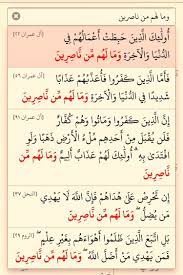 وما لهم من ناصرين
[آل عمران ٢٢]
أُولَٰئِكَ الَّذِينَ حَبِطَتْ أَعْمَالُهُمْ فِي
الدُّنْيَا وَالْآخِرَةِ وَمَا لَهُم مِّن نَّاصِرِينَ
[آل عمران ٥٦]
فَأَمَّا الَّذِينَ كَفَرُوا فَأُعَذِّبُهُمْ عَذَابًا
شَدِيدًا فِي الدُّنْيَا وَالْآخِرَةِ وَمَا لَهُم مِّن نَّاصِرِينَ
[آل عمران ٩١]
إِنَّ الَّذِينَ كَفَرُوا وَمَاتُوا وَهُمْ كُفَّارٌ
فَلَن يُقْبَلَ مِنْ أَحَدِهِم مِّلْءُ الْأَرْضِ ذَهَبًا وَلَوِ
افْتَدَىٰ بِهِ ۗ أُولَٰئِكَ لَهُمْ عَذَابٌ أَلِيمٌ وَمَا لَهُم مِّن
نَّاصِرِينَ
[النحل ٣٧]
إِن تَحْرِصْ عَلَىٰ هُدَاهُمْ فَإِنَّ اللَّهَ لَا يَهْدِي
مَن يُضِلُّ ۖ وَمَا لَهُم مِّن نَّاصِرِينَ
[الروم ٢٩]
بَلِ اتَّبَعَ الَّذِينَ ظَلَمُوا أَهْوَاءَهُم بِغَيْرِ عِلْمٍ ۖ
فَمَن يَهْدِي مَنْ أَضَلَّ اللَّهُ ۖ وَمَا لَهُم مِّن نَّاصِرِينَ